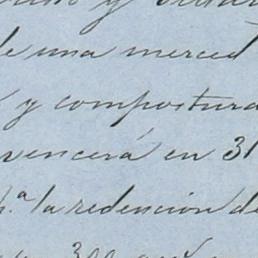 y
de una merced
y compostura
vencerá en 31
p.ª la redención de
300